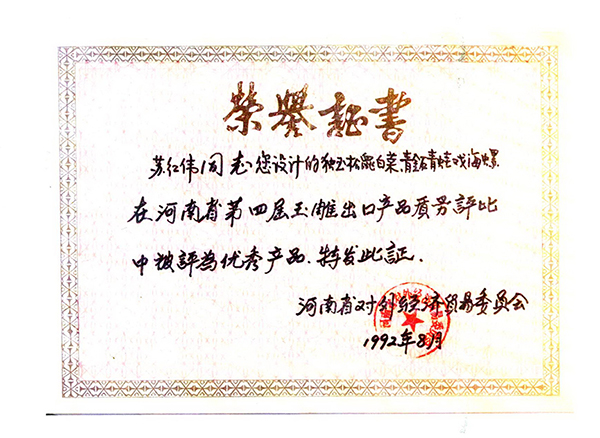 荣誉証書
苏红伟同志您设计的独玉松鼠白菜、青蛙戏海螺
在河南省第四届玉雕出口产品质量評比
中被評為优秀产品.特发此証.
河南省对外经济贸易委员会
1992年8月